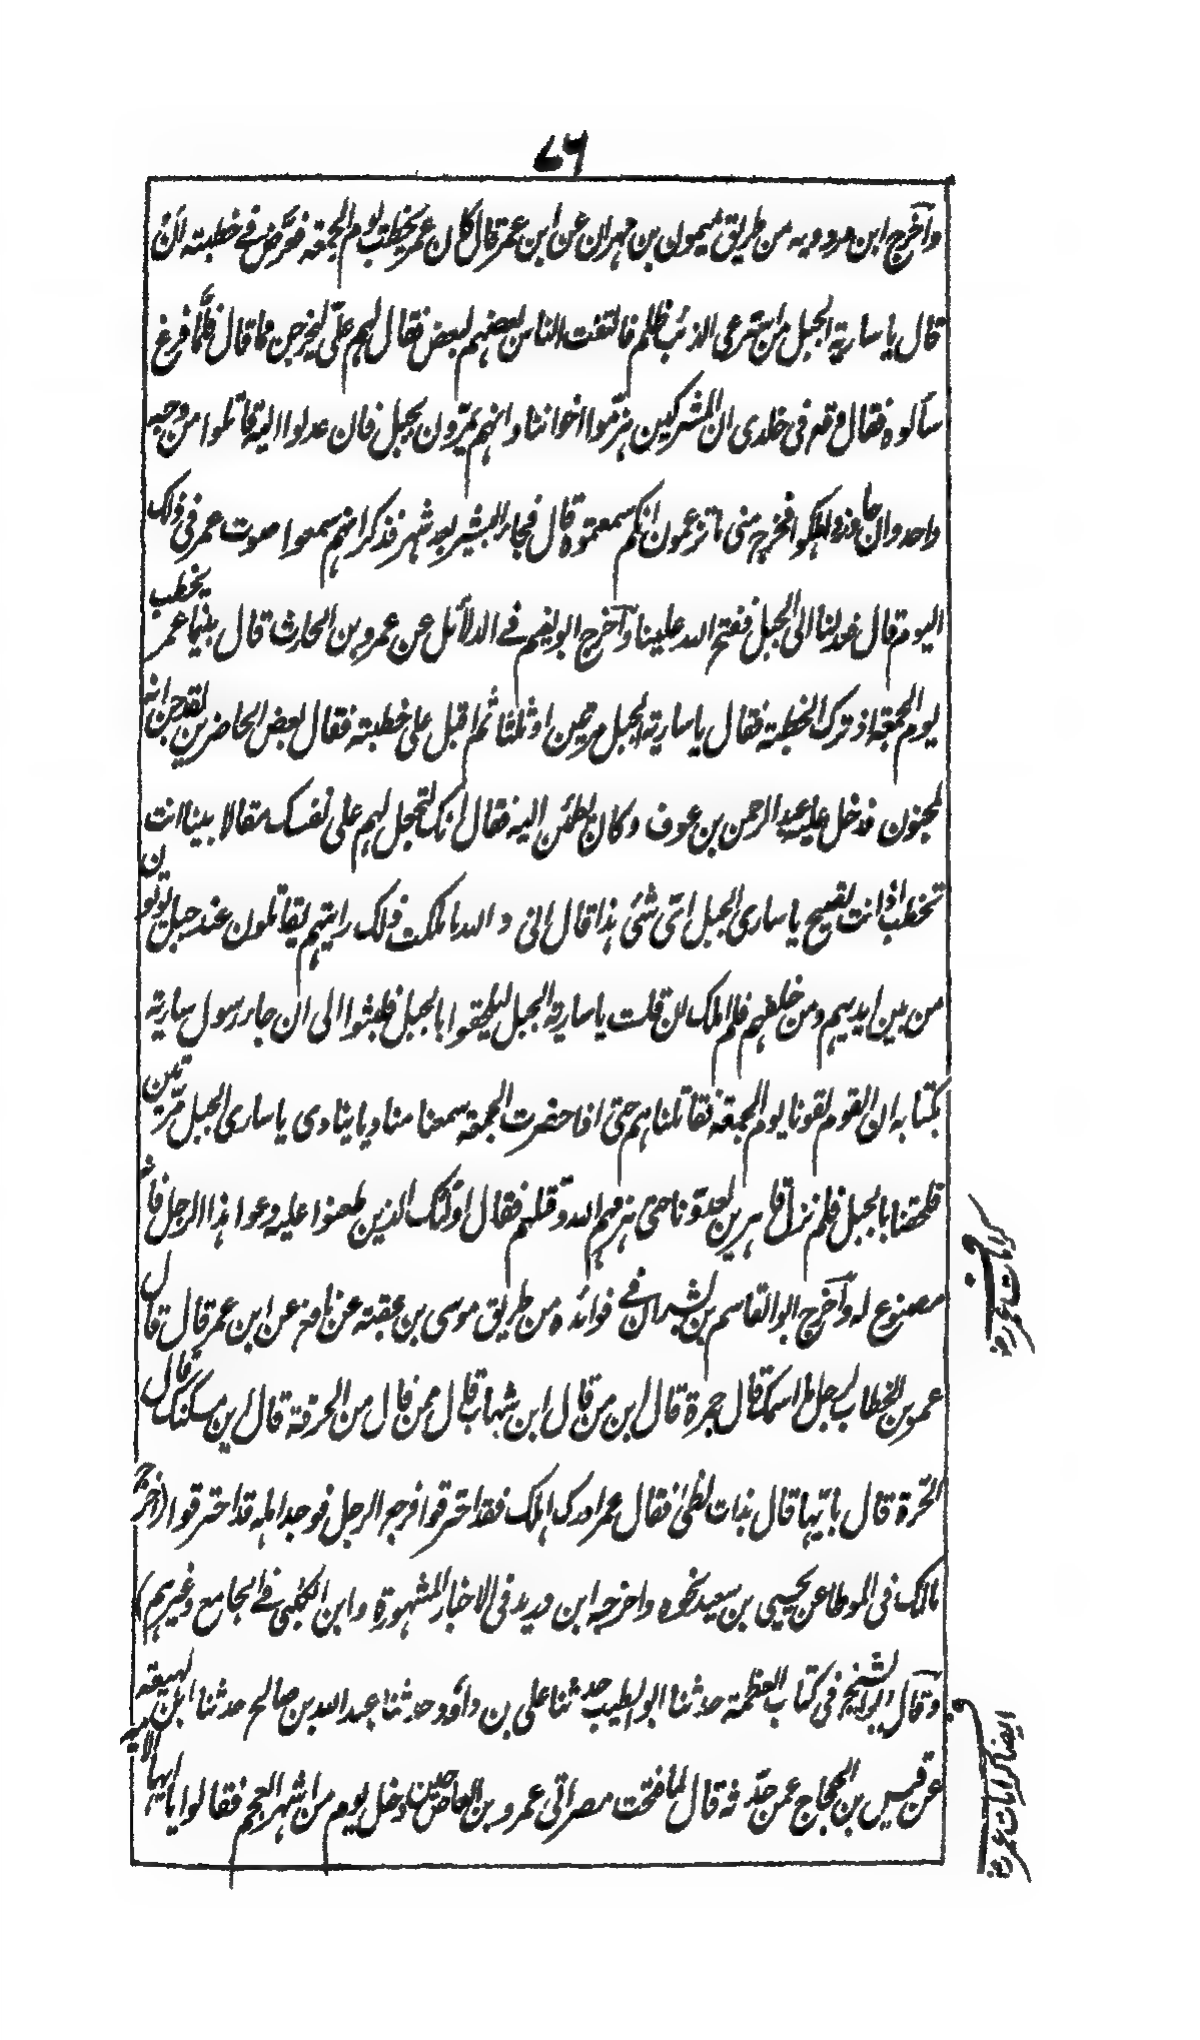 ٧٦
وأخرج ابن مردويه من طريق ميمون بن مهران عن ابن عمر قال كان عمر يخطب يوم الجمعة فعرض في خطبته ان
قال يا سارية الجبل من استرعى الذئب ظلم فالتفت الناس بعضهم لبعض فقال لهم علي ليخرجن مما قال فلما فرغ
سألوه فقال وقع في خلدي ان المشركين هزموا اخواننا وانهم يمرون بجبل فان عدلوا اليه قاتلوا من وجه
واحد وان جاوزوا هلكوا فخرج مني ما تزعمون انكم سمعتموه قال فجاء البشير بعد شهر فذكر انهم سمعوا صوت عمر في ذلك
اليوم قال فعدلنا الى الجبل ففتح الله علينا وأخرج ابو نعيم في الدلائل عن عمرو بن الحارث قال بينما عمر يخطب
يوم الجمعة اذ ترك الخطبة فقال يا سارية الجبل مرتين او ثلثا ثم اقبل على خطبته فقال بعض الحاضرين لقد جن انه
لمجنون فدخل عليه عبد الرحمن بن عوف وكان يطمئن اليه فقال انك لتجعل لهم على نفسك مقالا بينا انت
تخطب اذ انت تصيح يا ساري الجبل اي شئ هذا قال اني والله ما ملكت ذلك رايتهم يقاتلون عند جبل يؤتون
من بين ايديهم ومن خلفهم فلم املك ان قلت يا سارية الجبل ليلحقوا بالجبل فلبثوا الى ان جاء رسول سارية
بكتابه ان القوم لقونا يوم الجمعة فقاتلناهم حتى اذا حضرت الجمعة سمعنا مناديا ينادي يا ساري الجبل مرتين
فلحقنا بالجبل فلم نزل قاهرين لعدونا حتى هزمهم الله وقتلهم فقال اولئك الذين طعنوا عليه دعوا هذا الرجل فانه
مصنوع له وأخرج ابو القاسم بن بشران في فوائده من طريق موسى بن عقبة عن نافع عن ابن عمر قال قال
عمر بن الخطاب لرجل ما اسمك قال جمرة قال ابن من قال ابن شهاب قال ممن قال من الحرقة قال اين مسكنك قال
الحرة قال بايها قال بذات لظى فقال عمر ادرك اهلك فقد احترقوا فرجع الرجل فوجد اهله قد احترقوا اخرج
مالك في الموطا عن يحيى بن سعيد نحوه واخرجه ابن دريد في الاخبار المشهورة وابن الكلبي في الجامع وغيرهم
وقال ابو الشيخ في كتاب العظمة حدثنا ابو الطيب حدثنا علي بن داود حدثنا عبد الله بن صالح حدثنا ابن لهيعة
عن قيس بن الحجاج عمن حدثه قال لما فتحت مصر اتى عمرو بن العاص حين دخل يوم من اشهر العجم فقالوا يا ايها الامير
كرامات عمر رض
ايضا كرامات عمر رض